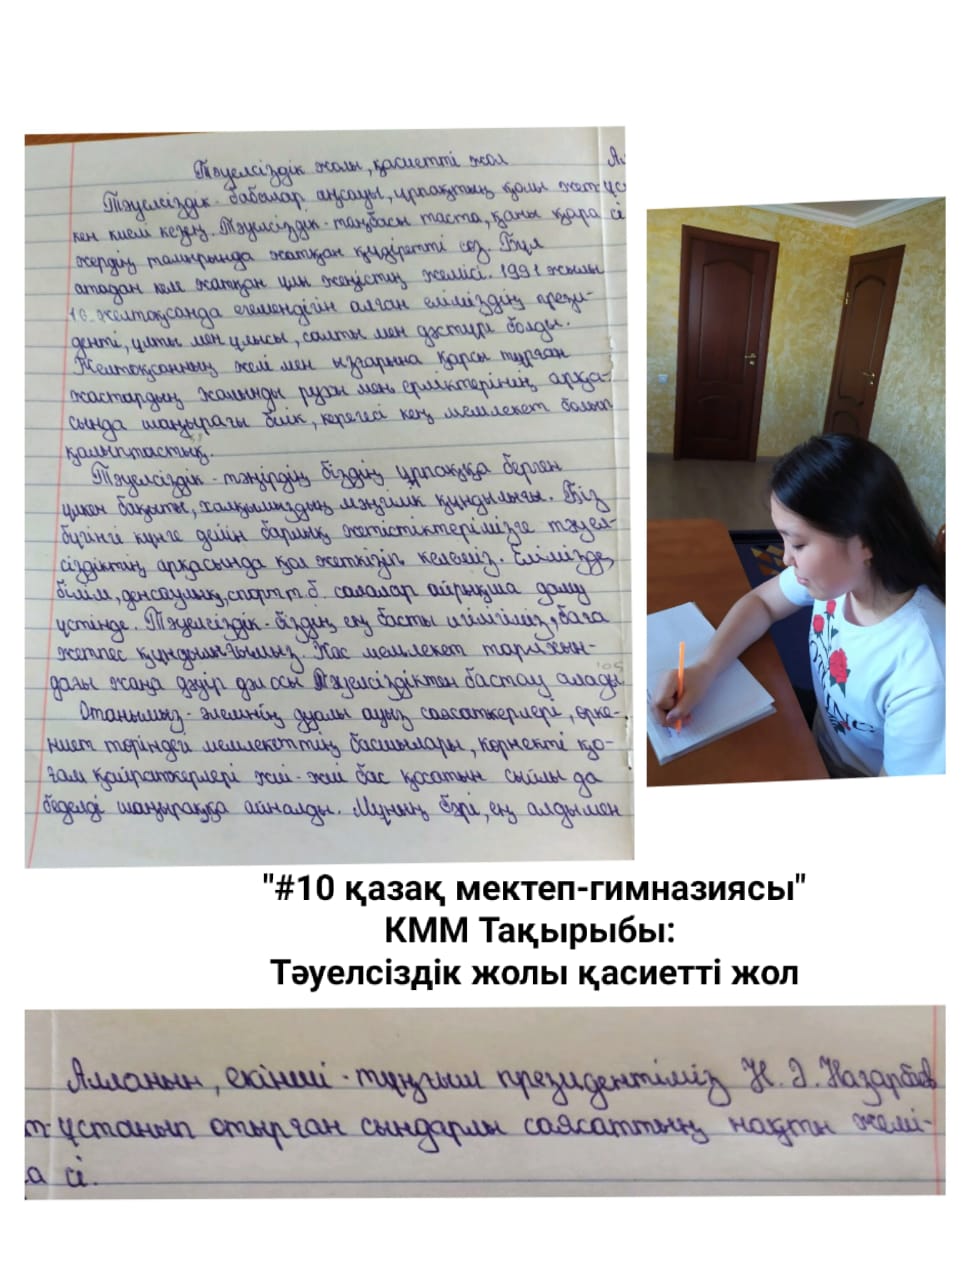 Тәуелсіздік жолы, қасиетті жол
Тәуелсіздік - бабалар аңсауы, ұрпақтың қолы жет-
кен киелі кезең. Тәуелсіздік - таңбасы таста, қаны қара
жердің тамырында жатқан құдіретті сөз. Бұл
атадан келе жатқан ұлы жеңістің жемісі. 1991 жылы
16 желтоқсанда егемендігін алған еліміздің прези-
денті, ұлты мен ұлысы, салты мен дәстүрі болды.
Желтоқсанның желі мен ызғарына қарсы тұрған
жастардың жалынды рухы мен ерліктерінің арқа-
сында шаңырағы биік, керегесі кең мемлекет болып
қалыптастық.
Тәуелсіздік - тәңірдің біздің ұрпаққа берген
үлкен бақыты, халқымыздың мәңгілік құндылығы. Біз
бүгінгі күнге дейін барлық жетістіктерімізге тәуел-
сіздіктің арқасында қол жеткізіп келеміз. Елімізде,
білім, денсаулық, спорт т.б. салалар айрықша даму
үстінде. Тәуелсіздік - біздің ең басты игілігіміз, баға
жетпес құндылығымыз. Жас мемлекет тарихын-
дағы жаңа дәуір дәл осы Тәуелсіздіктен бастау алады
Отанымыз - әлемнің дуалы ауыз саясаткерлері, өрке-
ниет төріндегі мемлекеттің басшылары, көрнекті қо-
ғам қайраткерлері жиі-жиі бас қосатын сыйлы да
беделді шаңыраққа айналды. Мұның бәрі, ең алдымен
"#10 қазақ мектеп-гимназиясы"
КММ Тақырыбы:
Тәуелсіздік жолы қасиетті жол
Алланын, екінші - тұңғыш президентіміз Н. Ә. Назарбаев
ұстанып отырған сындарлы саясаттың нақты жемі-
сі.